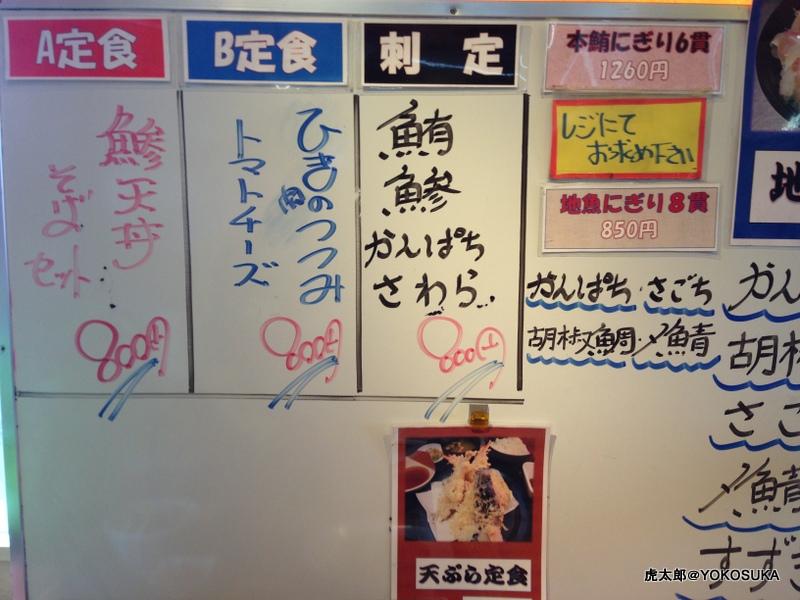 A定食
鯵天丼
そばセット
800円
B定食
ひき肉のつつみ
トマトチーズ
800円
刺定
鮪
鯵
かんぱち
さわら
800円
本鮪にぎり6貫
1260円
レジにて
お求め下さい
地魚にぎり8貫
850円
かんぱち・さごち
胡椒鯛・〆鯖
天ぷら定食
地
かん
胡椒
さご
〆鯖
すずき
虎太郎@YOKOSUKA